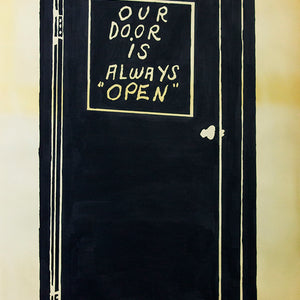 OUR
DO.OR
IS
ALWAYS
"OPEN"